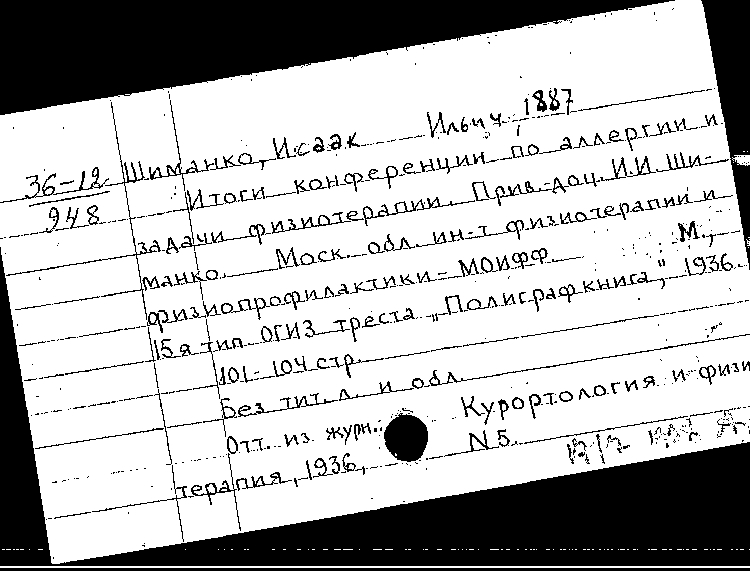 36-12
948
Шиманко, Исаак Ильич, 1887
Итоги конференции по аллергии и
задачи физиотерапии. Прив.-доц. И.И. Ши-
манко. Моск. обл. ин-т физиотерапии и
физиопрофилактики - МОИФФ. М.,
15я тип. ОГИЗ треста "Полиграфкнига", 1936.
101-104 стр.
Без тит. л. и обл.
Отт. из журн.: Курортология и физи
терапия, 1936, N 5.